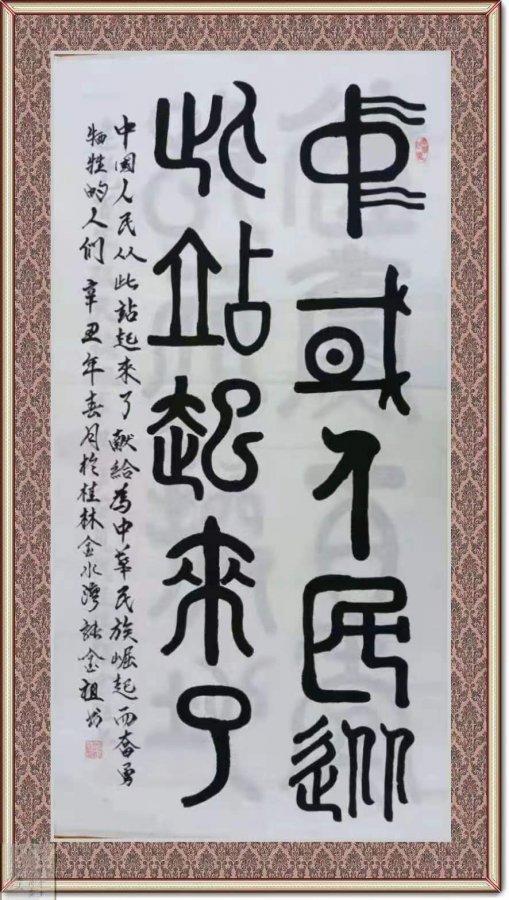 中或人民從
此站起來了
中國人民从此站起来了献给为中華民族崛起而奋勇
牺牲的人们 辛丑年春月於桂林金水灣金祖书